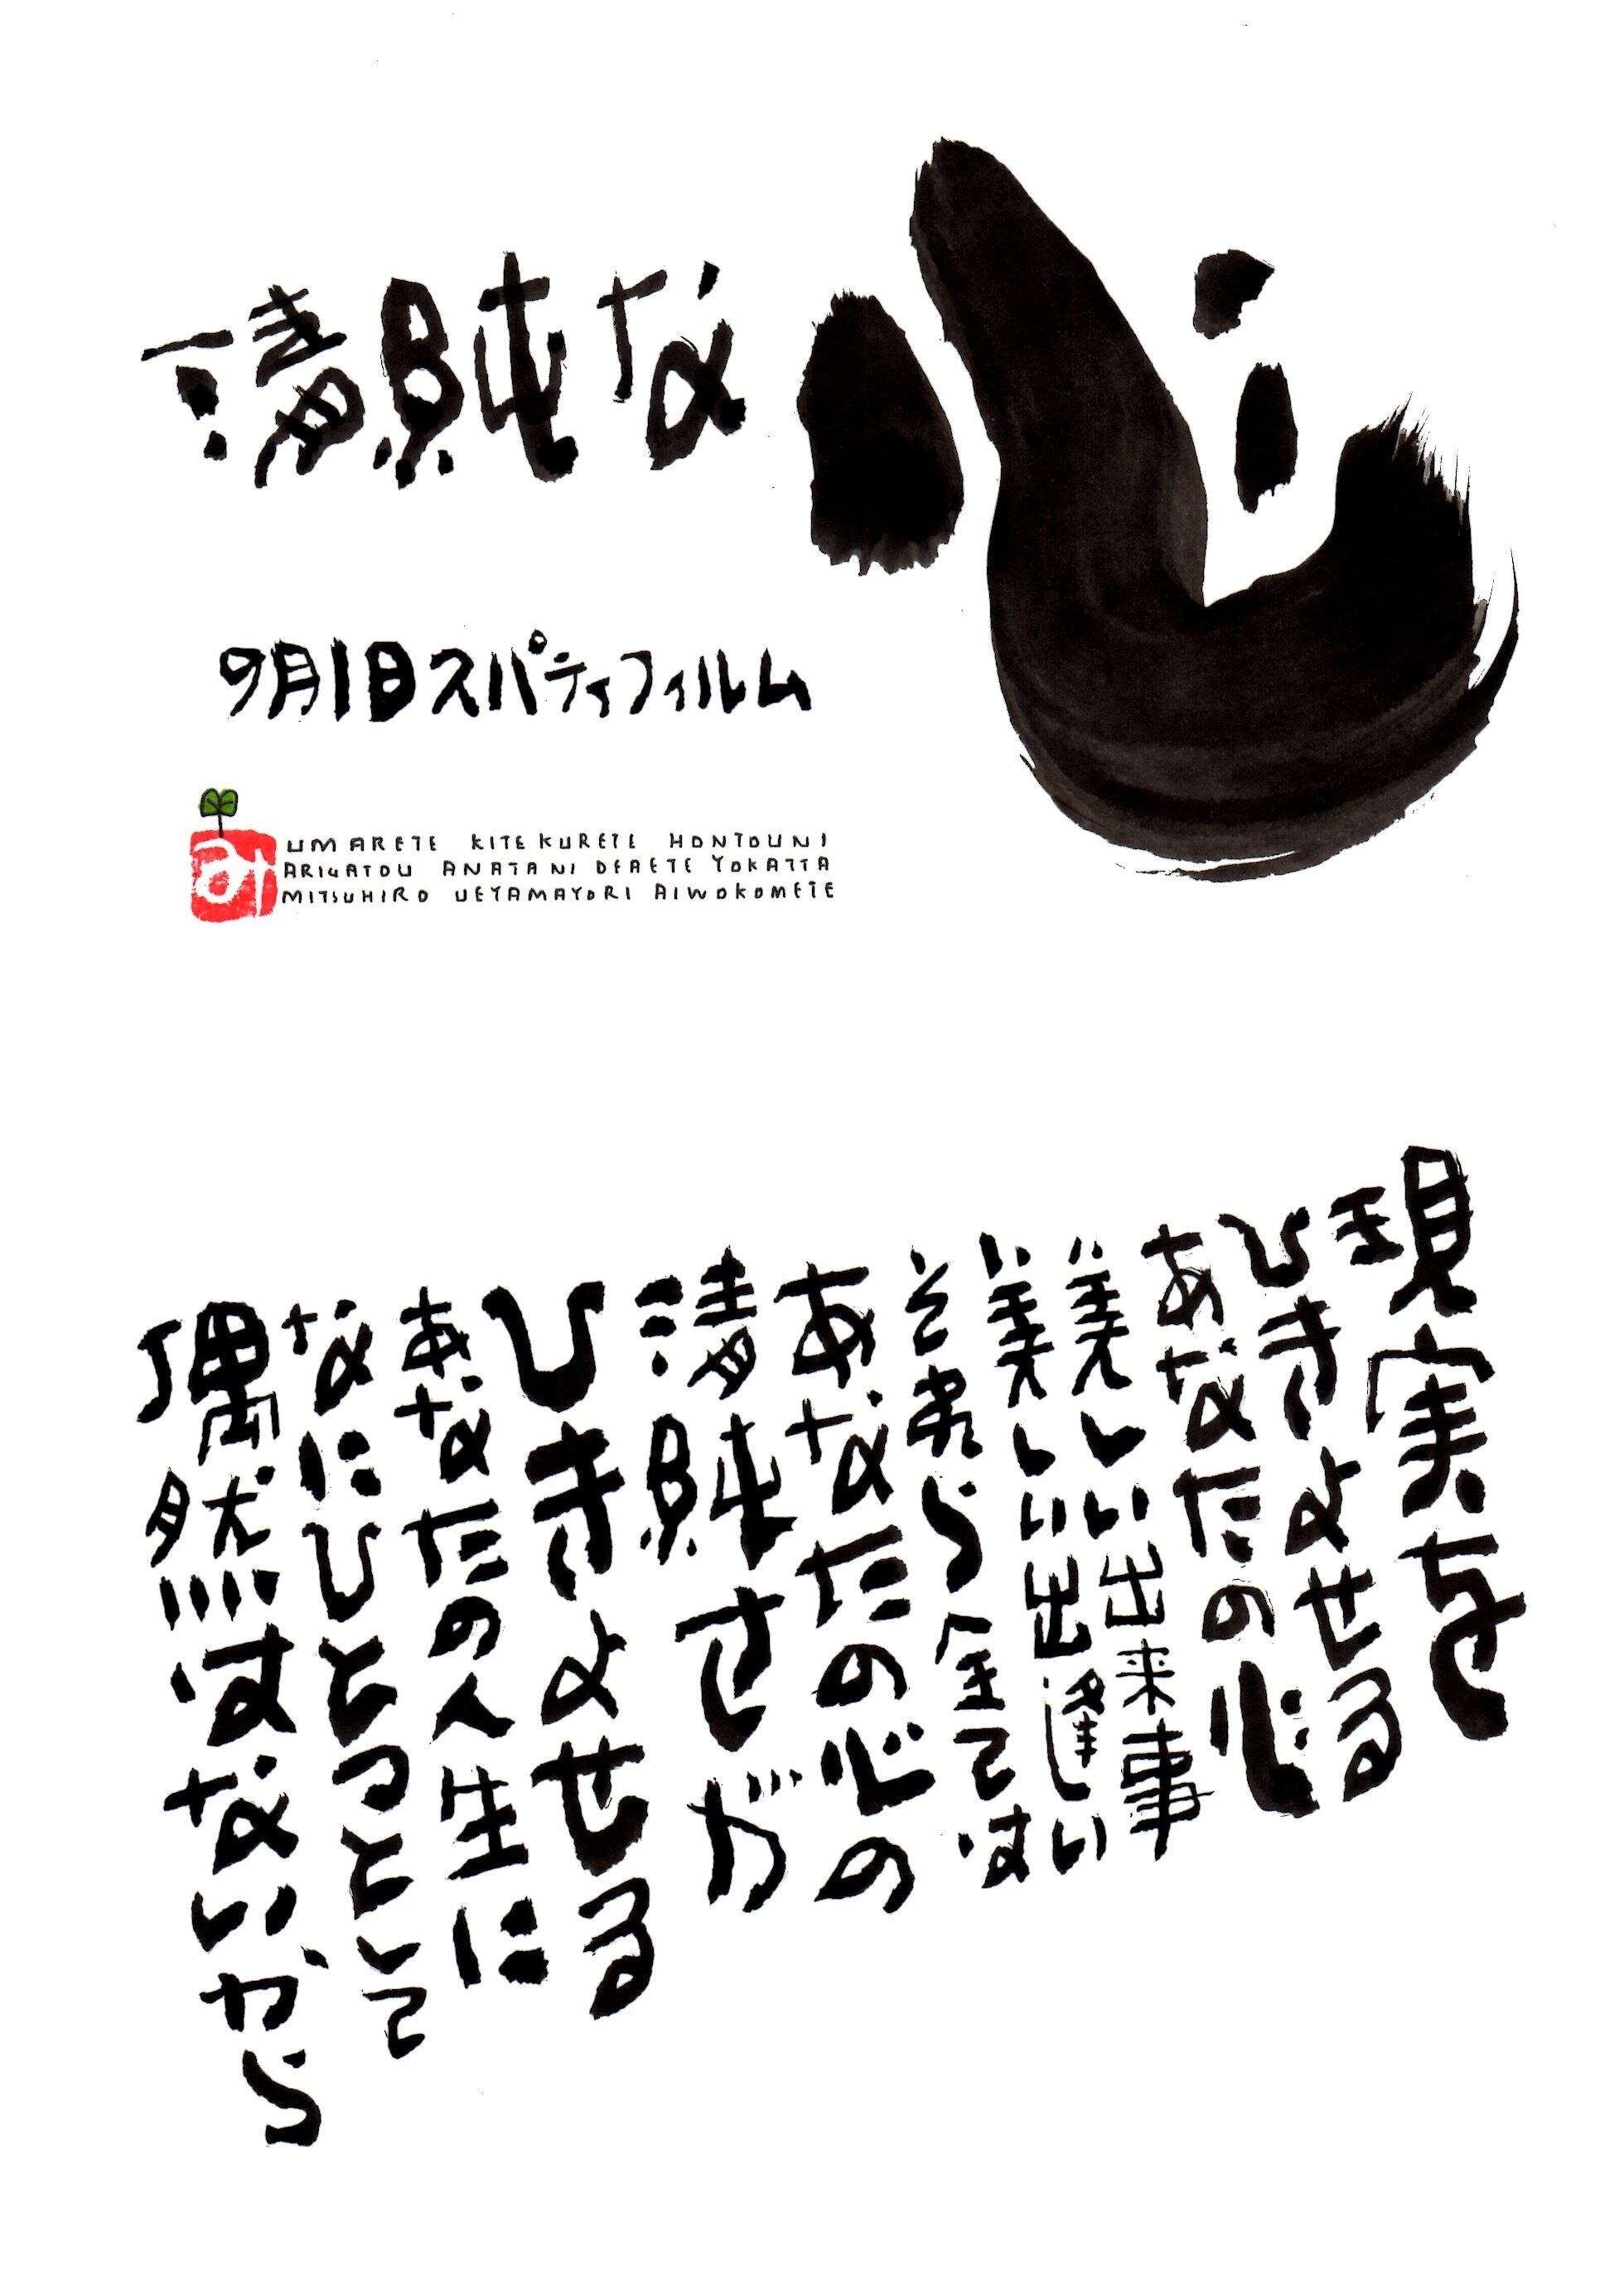 清純な心
9月1日スパティフィルム
み
UMARETE KITEKURETE HONTOUNI
ARIGATOU ANATANI DEAETE YOKATTA
MITSUHIRO UEYAMAYORI AIWOKOMETE
現実を
ひきよせる
あなたの心
美しい出来事
美しい出逢い
それら全ては
あなたの心の
清純さが
ひきよせる
あなたの人生に
なにひとつとして
偶然はないから